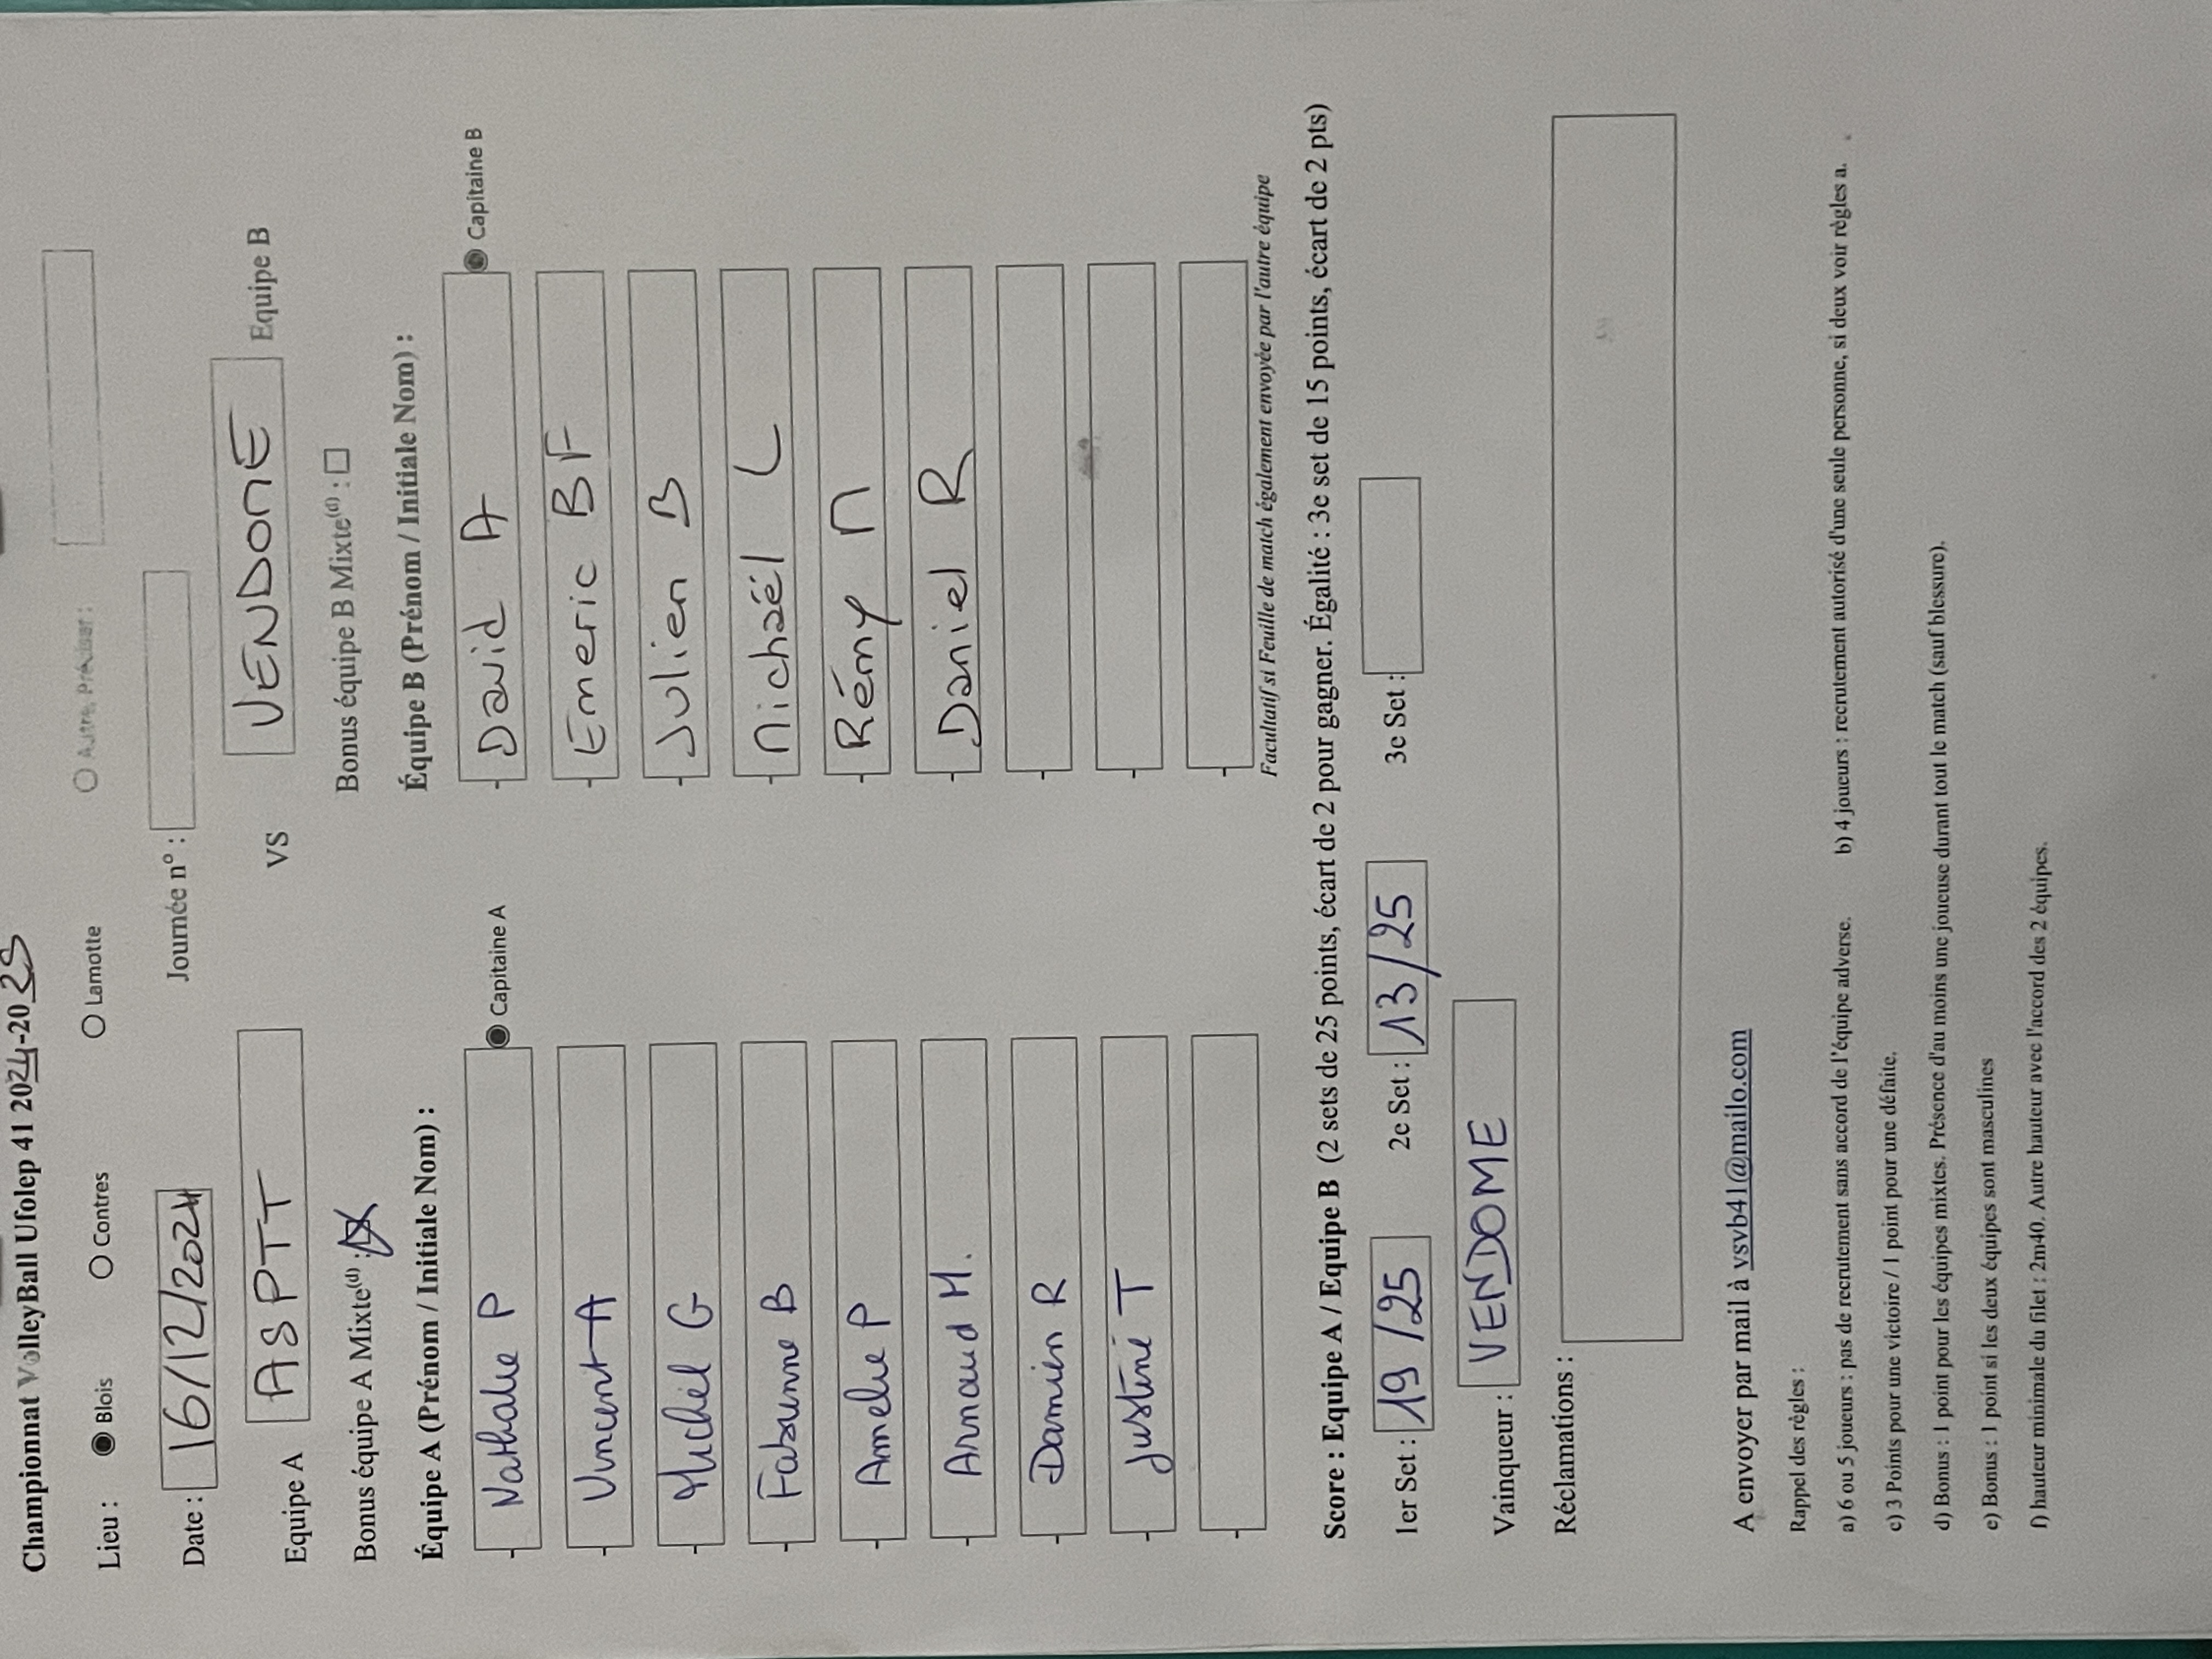 Championnat VolleyBall Ufolep 41 2024-2025
Lieu : Blois Contres Lamotte Autre, Préciser :
Date : 16/12/2024 Journée n° :
Equipe A ASPTT VS VENDOME Equipe B
Bonus équipe A Mixte(d) : Bonus équipe B Mixte(d) :
Équipe A (Prénom / Initiale Nom) : Équipe B (Prénom / Initiale Nom) :
- Nathalie P Capitaine A - David A Capitaine B
- Vincent A - Emeric BF
- Michel G - Julien B
- Fabienne B - Michaël L
- Amelie P - Rémy M
- Arnaud M. - Daniel R
- Damien R -
- Justine T -
- -
Facultatif si Feuille de match également envoyée par l'autre équipe
Score : Equipe A / Equipe B (2 sets de 25 points, écart de 2 pour gagner. Égalité : 3e set de 15 points, écart de 2 pts)
1er Set : 19/25 2e Set : 13/25 3e Set :
Vainqueur : VENDOME
Réclamations :
A envoyer par mail à vsvb41@mailo.com
Rappel des règles :
a) 6 ou 5 joueurs : pas de recrutement sans accord de l'équipe adverse. b) 4 joueurs : recrutement autorisé d'une seule personne, si deux voir règles a.
c) 3 Points pour une victoire / 1 point pour une défaite.
d) Bonus : 1 point pour les équipes mixtes. Présence d'au moins une joueuse durant tout le match (sauf blessure).
e) Bonus : 1 point si les deux équipes sont masculines
f) hauteur minimale du filet : 2m40. Autre hauteur avec l'accord des 2 équipes.